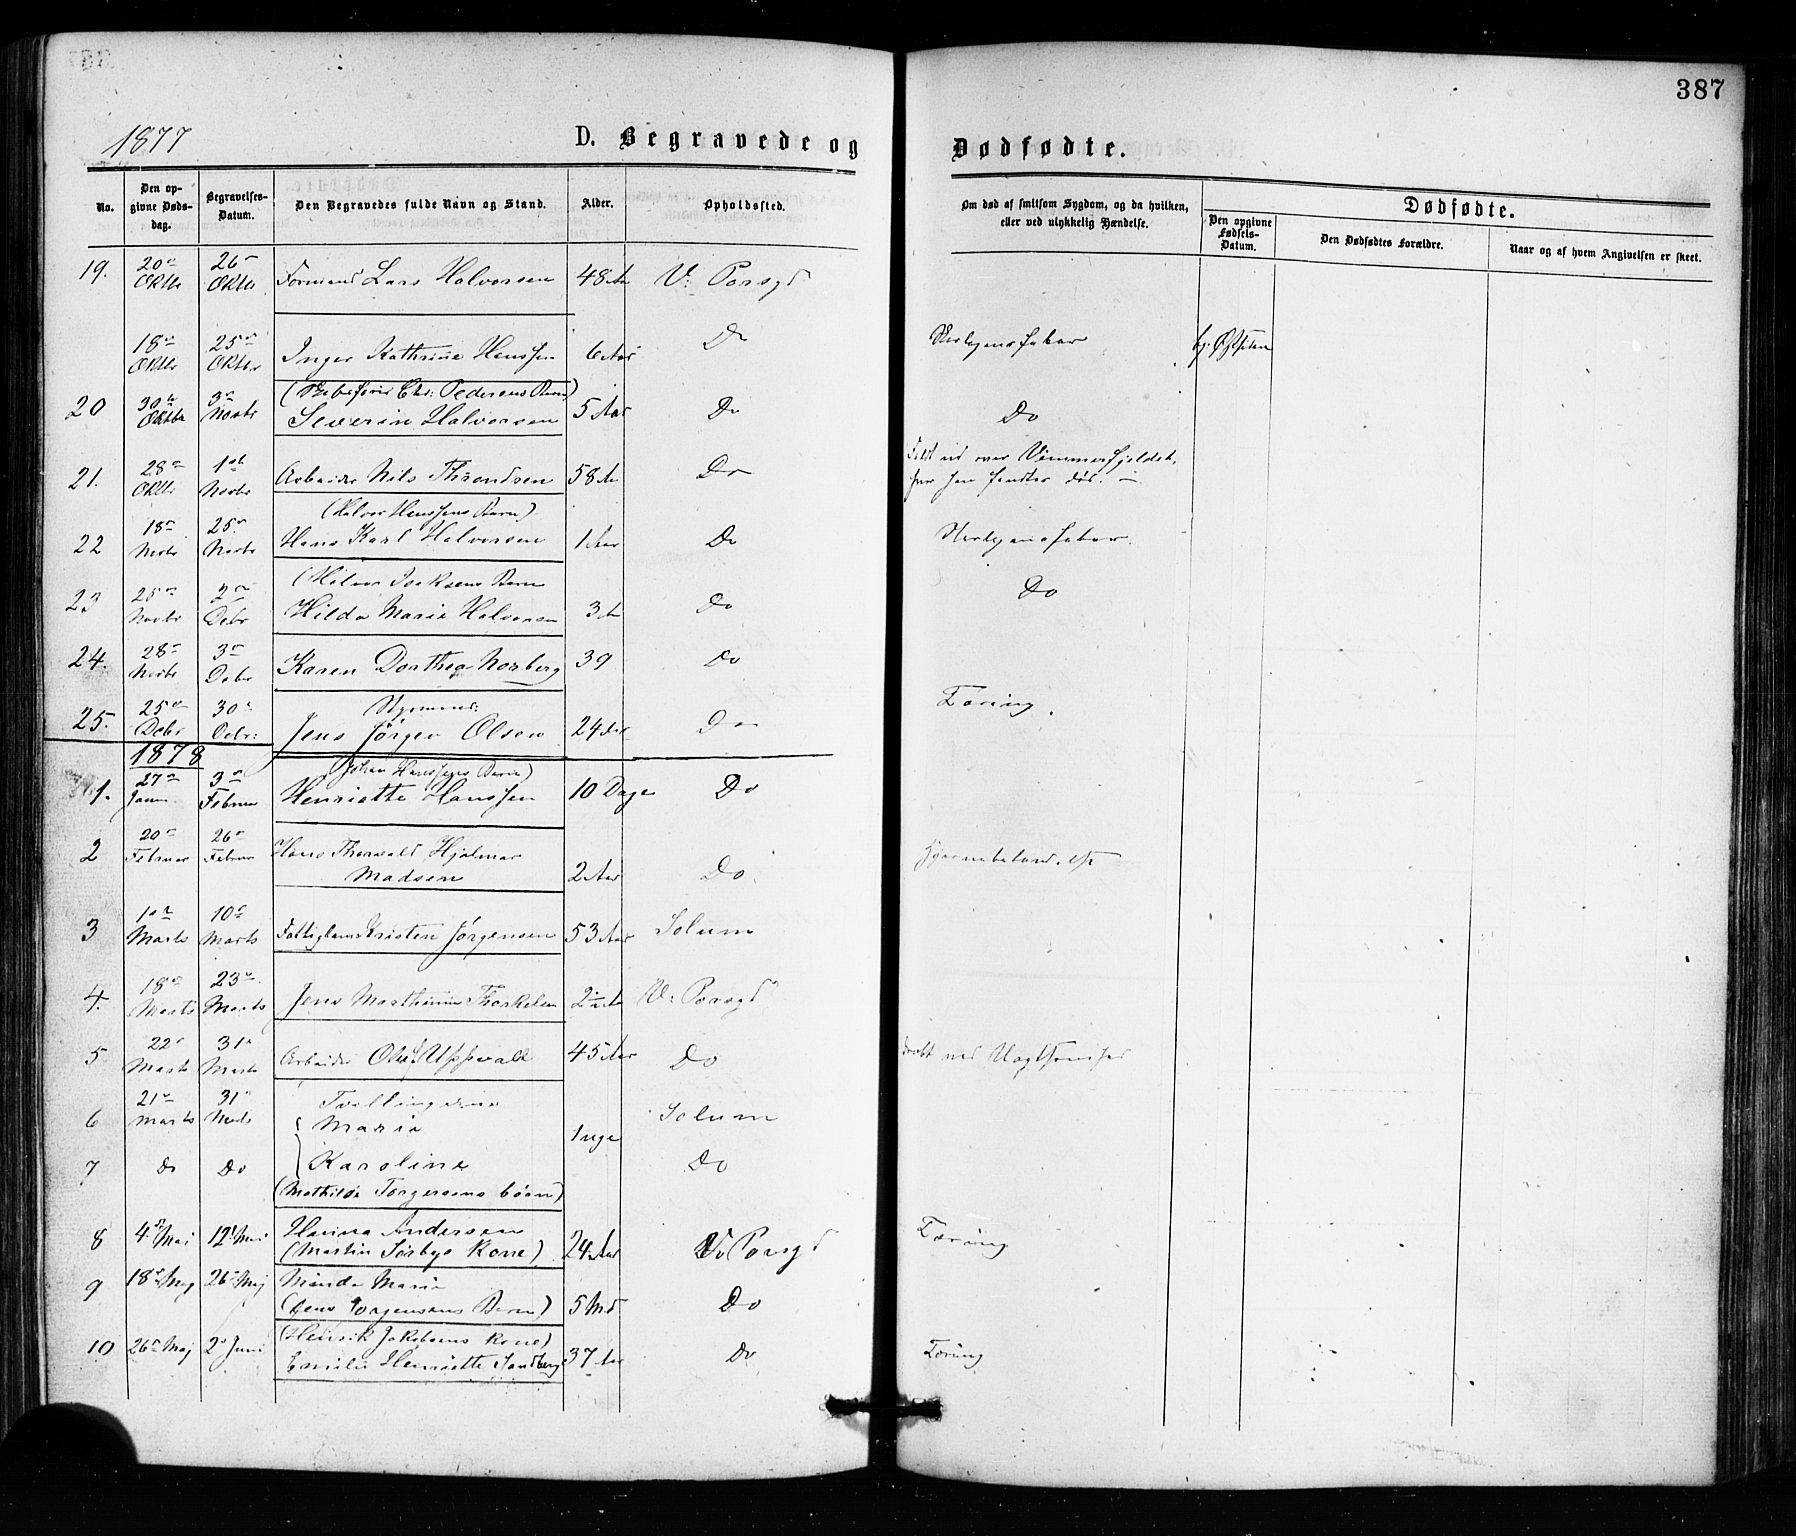 387
1877
D. Begravede og Dødfødte.
No.
Den opgivne Dødsdag.
Begravelses-Datum.
Den Begravedes fulde Navn og Stand.
Alder.
Opholdssted.
Om død af smitsom Sygdom, og da hvilken, eller ved ulykkelig Hændelse.
Dødfødte.
Den opgivne Fødsels-Datum.
Den Dødfødtes Forældre.
Naar og af hvem Angivelsen er skeet.
19. 20de Oktbr 26 Oktbr Formand Lars Halvorsen 48 A V: Porsgd
18de Oktbr 25de Oktbr Inger Kathrine Hanssen 6 Aar Do
20 30te Oktbr 3de Novbr ( Chr: Pedersens Barn) Severin Halvorsen 5 Aar Do Do
21. 28de Oktbr 1ste Novbr Arbeider Nils Throndsen 58 A Do Faldt ud over Vimmerfjeldet, hvor han fandtes død.
22 18de Novbr 25de Novbr (Halvor Hanssens Barn) Hans Karl Halvorsen 1 Aar Do
23 25de Novbr 2den Debr (Halvor Isaksens Barn Hilda Marie Halvorsen 3 A Do Do
24. 28de Novbr 3de Debr Karen Dorthea Norberg 39 Do
25. 25de Debr 30te Debr: Styrmand: Jens Jørgen Olsen 24 Aar Do Tæring.
1878
1. 27de Janr 3de Februar (Johan Hanssens Barn) Henriette Hanssen 10 Dage Do
2 20de Februar 26de Februar Hans Thorvald Hjalmar Madsen 2 Aar Do
3 1ste Marts 10de Marts Fattiglem Kristen Jørgensen 53 Aar Solum
4. 18de Marts 23de Marts Jens Marthinius Thorkelsen 2 A V: Porsgd
5 22de Marts 31te Marts Arbeider Oluf Uppvall 45 Aar Do
6 21de Marts 31te Marts Tvillingerne Marie 1 uge Solum
7 Do Do Karoline Do
(Mathilde Torgersens børn)
8 4de Mai 12te Mai Hanna Andersen (Martin Sørbyes Kone) 24 Aar V Porsgd Tæring
9 18de Maj 26de Maj Minda Marie (Jens Jørgensens Barn) 5 Md Do
10 26de Maj 2de Juni (Henrik Jakobsens Kone) Emilie Henriette Sandberg 37 Aar Do Tæring